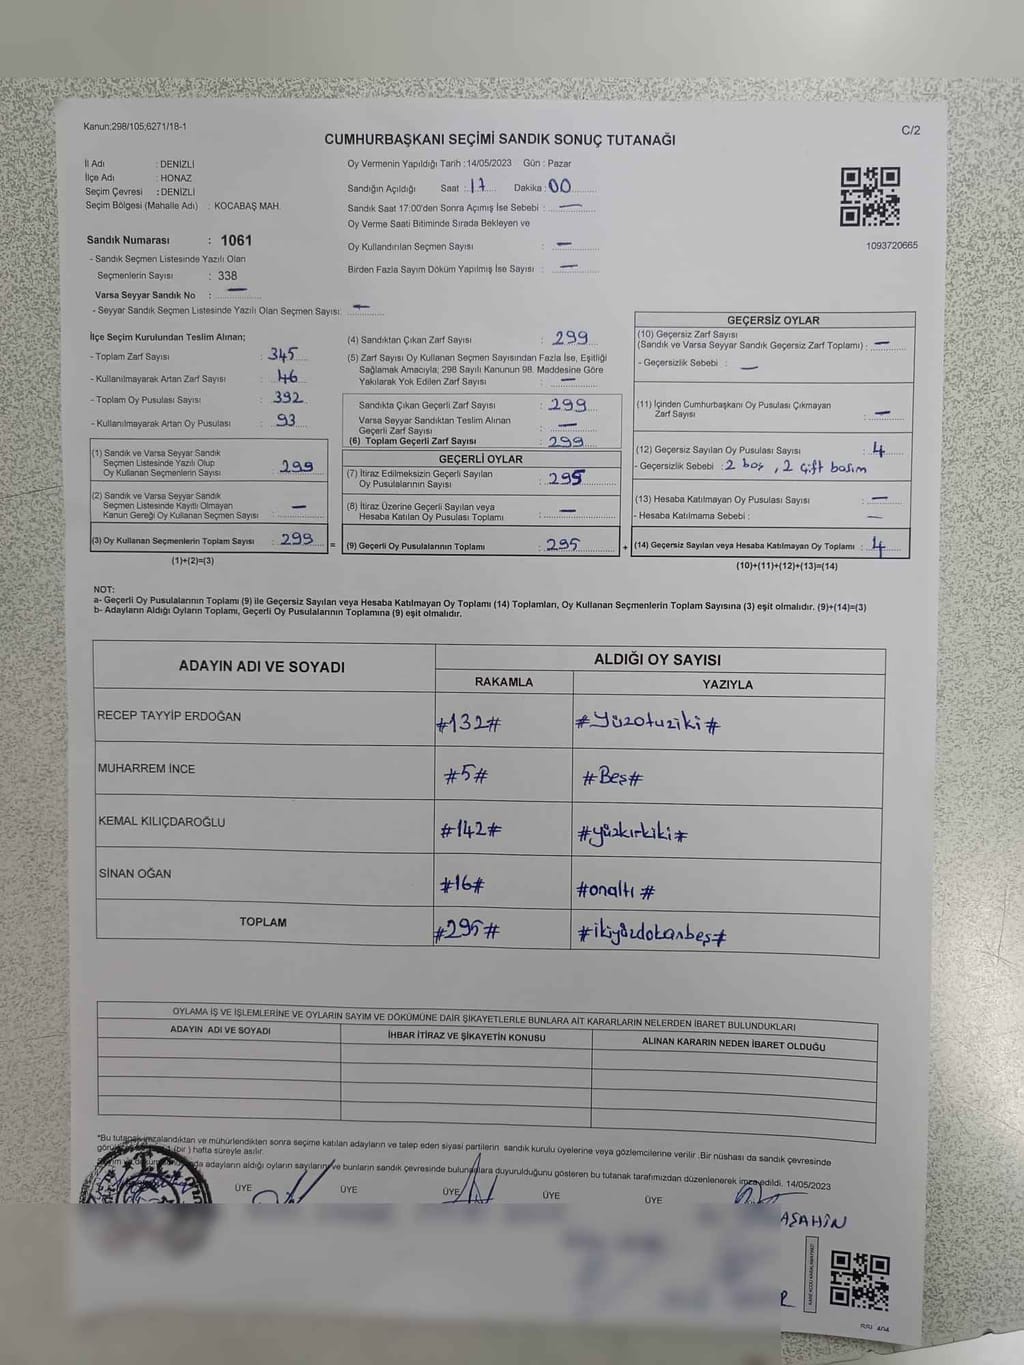 Kanun:298/105;6271/18-1
C/2
CUMHURBAŞKANI SEÇİMİ SANDIK SONUÇ TUTANAĞI
İl Adı : DENİZLİ
İlçe Adı : HONAZ
Seçim Çevresi : DENİZLİ
Seçim Bölgesi (Mahalle Adı) : KOCABAŞ MAH.
Sandık Numarası : 1061
- Sandık Seçmen Listesinde Yazılı Olan
Seçmenlerin Sayısı : 338
Varsa Seyyar Sandık No : —
- Seyyar Sandık Seçmen Listesinde Yazılı Olan Seçmen Sayısı: —
Oy Vermenin Yapıldığı Tarih : 14/05/2023 Gün : Pazar
Sandığın Açıldığı Saat : 17 Dakika : 00
Sandık Saat 17:00'den Sonra Açımış İse Sebebi : —
Oy Verme Saati Bitiminde Sırada Bekleyen ve
Oy Kullandırılan Seçmen Sayısı : —
Birden Fazla Sayım Döküm Yapılmış İse Sayısı : —
1093720665
İlçe Seçim Kurulundan Teslim Alınan;
- Toplam Zarf Sayısı : 345
- Kullanılmayarak Artan Zarf Sayısı : 46
- Toplam Oy Pusulası Sayısı : 392
- Kullanılmayarak Artan Oy Pusulası : 93
(1) Sandık ve Varsa Seyyar Sandık
Seçmen Listesinde Yazılı Olup
Oy Kullanan Seçmenlerin Sayısı : 299
(2) Sandık ve Varsa Seyyar Sandık
Seçmen Listesinde Kayıtlı Olmayan
Kanun Gereği Oy Kullanan Seçmen Sayısı : —
(3) Oy Kullanan Seçmenlerin Toplam Sayısı : 299
(1)+(2)=(3)
(4) Sandıktan Çıkan Zarf Sayısı : 299
(5) Zarf Sayısı Oy Kullanan Seçmen Sayısından Fazla İse, Eşitliği
Sağlamak Amacıyla; 298 Sayılı Kanunun 98. Maddesine Göre
Yakılarak Yok Edilen Zarf Sayısı : —
Sandıkta Çıkan Geçerli Zarf Sayısı : 299
Varsa Seyyar Sandıktan Teslim Alınan
Geçerli Zarf Sayısı : —
(6) Toplam Geçerli Zarf Sayısı : 299
GEÇERLİ OYLAR
(7) İtiraz Edilmeksizin Geçerli Sayılan
Oy Pusulalarının Sayısı : 295
(8) İtiraz Üzerine Geçerli Sayılan veya
Hesaba Katılan Oy Pusulası Toplamı : —
= (9) Geçerli Oy Pusulalarının Toplamı : 295
GEÇERSİZ OYLAR
(10) Geçersiz Zarf Sayısı
(Sandık ve Varsa Seyyar Sandık Geçersiz Zarf Toplamı) : —
- Geçersizlik Sebebi : —
(11) İçinden Cumhurbaşkanı Oy Pusulası Çıkmayan
Zarf Sayısı : —
(12) Geçersiz Sayılan Oy Pusulası Sayısı : 4
- Geçersizlik Sebebi : 2 boş , 2 çift basım
(13) Hesaba Katılmayan Oy Pusulası Sayısı : —
- Hesaba Katılmama Sebebi : —
+ (14) Geçersiz Sayılan veya Hesaba Katılmayan Oy Toplamı : 4
(10)+(11)+(12)+(13)=(14)
NOT:
a- Geçerli Oy Pusulalarının Toplamı (9) ile Geçersiz Sayılan veya Hesaba Katılmayan Oy Toplamı (14) Toplamları, Oy Kullanan Seçmenlerin Toplam Sayısına (3) eşit olmalıdır. (9)+(14)=(3)
b- Adayların Aldığı Oyların Toplamı, Geçerli Oy Pusulalarının Toplamına (9) eşit olmalıdır.
ADAYIN ADI VE SOYADI
ALDIĞI OY SAYISI
RAKAMLA YAZIYLA
RECEP TAYYİP ERDOĞAN #132# #Yüzotuziki#
MUHARREM İNCE #5# #Beş#
KEMAL KILIÇDAROĞLU #142# #yüzkırkiki#
SİNAN OĞAN #16# #onaltı#
TOPLAM #295# #ikiyüzdoksanbeş#
OYLAMA İŞ VE İŞLEMLERİNE VE OYLARIN SAYIM VE DÖKÜMÜNE DAİR ŞİKAYETLERLE BUNLARA AİT KARARLARIN NELERDEN İBARET BULUNDUKLARI
ADAYIN ADI VE SOYADI İHBAR İTİRAZ VE ŞİKAYETİN KONUSU ALINAN KARARIN NEDEN İBARET OLDUĞU
*Bu tutanak imzalandıktan ve mühürlendikten sonra seçime katılan adayların ve talep eden siyasi partilerin sandık kurulu üyelerine veya gözlemcilerine verilir. Bir nüshası da sandık çevresinde
(bir) hafta süreyle asılır.
adayların aldığı oyların sayılarını ve bunların sandık çevresinde bulunanlara duyurulduğunu gösteren bu tutanak tarafımızdan düzenlenerek imza edildi. 14/05/2023
ÜYE ÜYE ÜYE ÜYE ÜYE
AŞAHİN